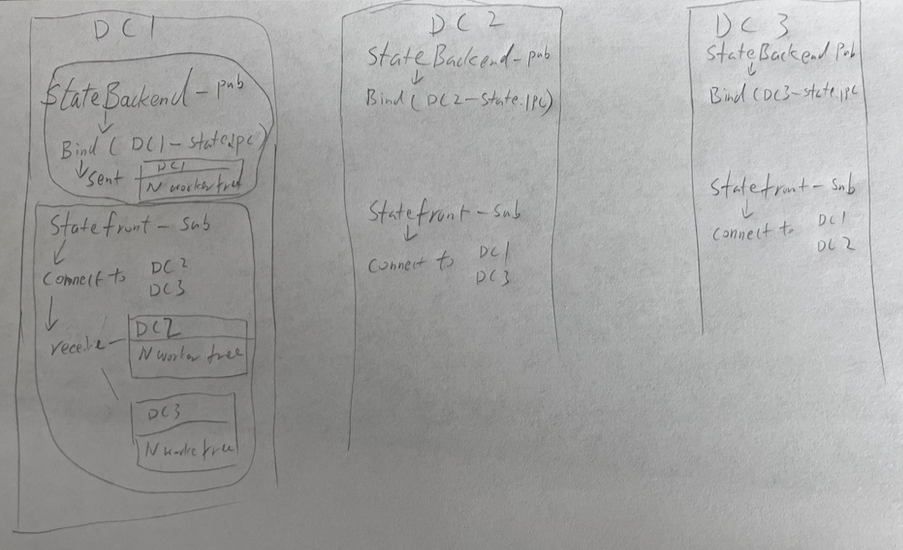 DC1
StateBackend - pub
Bind ( DC1-state.ipc)
sent
DC1
N worker free
Statefront - sub
Connect to DC2
DC3
receive
DC2
N worker free
DC3
N worker free
DC2
StateBackend - pub
Bind (DC2-state.ipc)
Statefront - sub
Connect to DC1
DC3
DC3
StateBackend pub
Bind (DC3-state.ipc
Statefront - sub
Connect to DC1
DC2